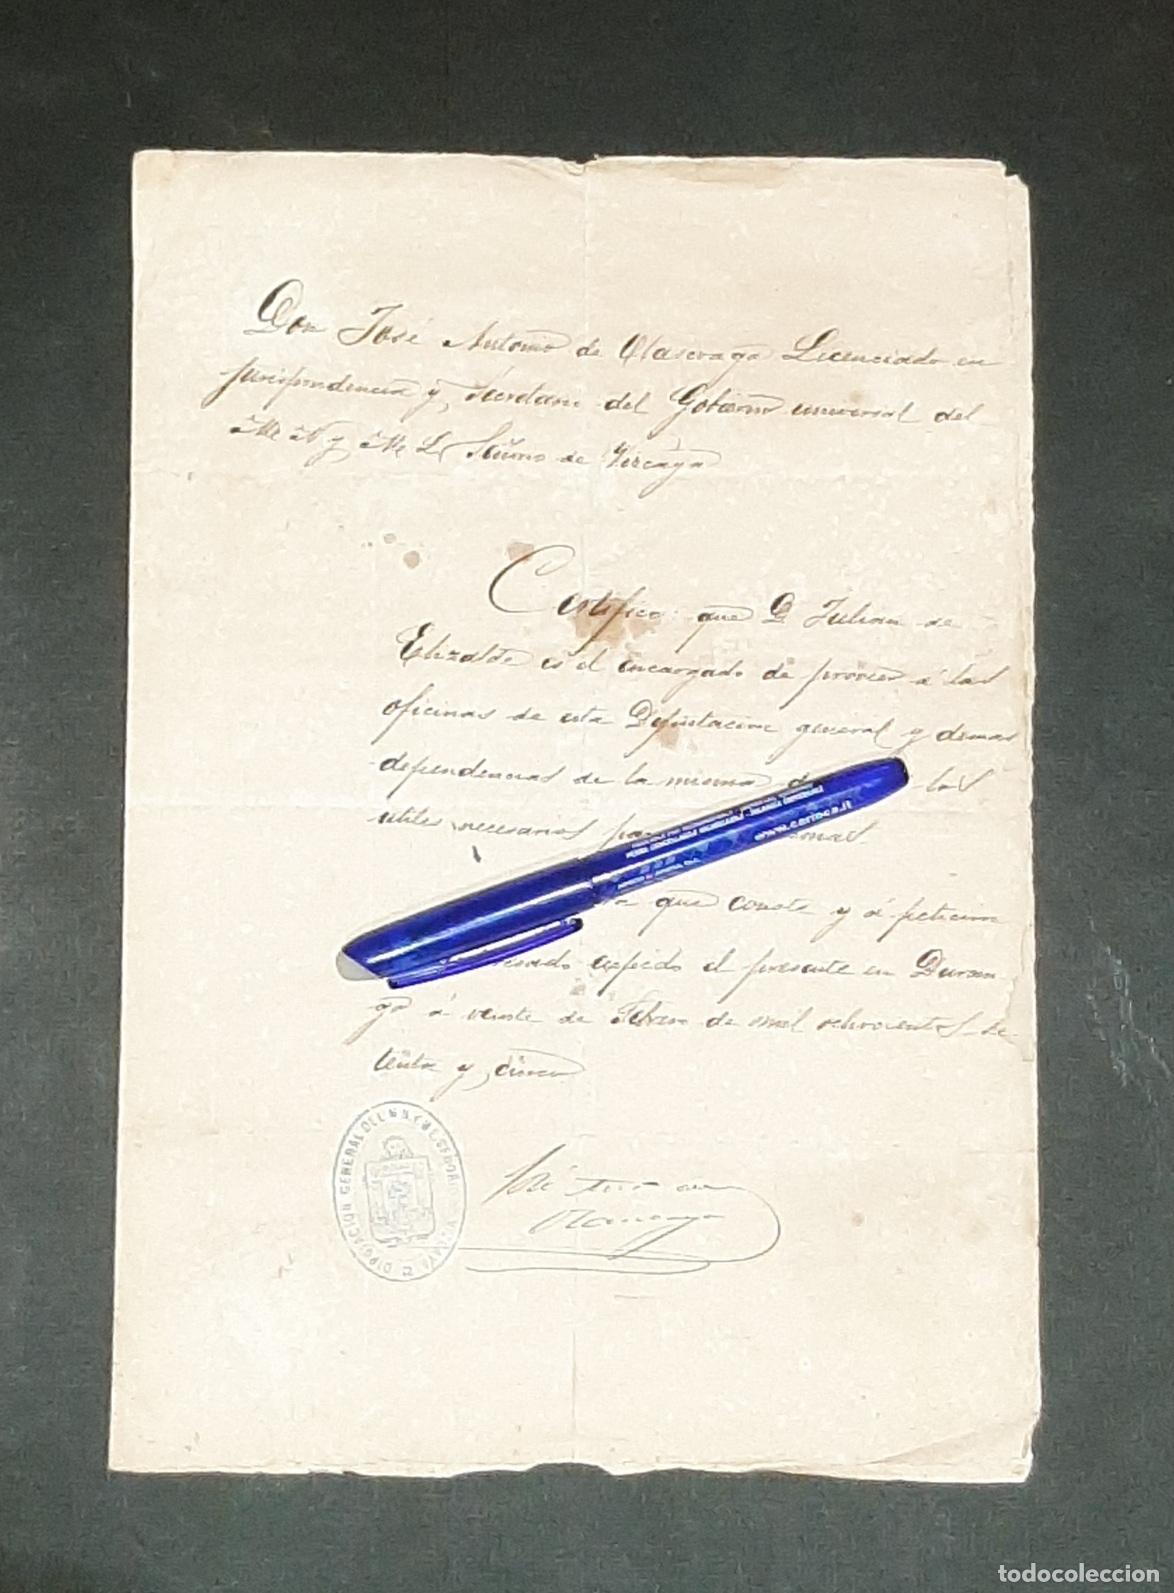 Don José Antonio de Olascoaga Licenciado en
jurisprudencia y Secretario del Gobierno universal del
M. N. y M. L. Señorio de Vizcaya
Certifico: que D. Julian de
Elizalde es el encargado de proveer á las
oficinas de esta Diputacion general y demas
dependencias de la misma de las
utiles necesarios
que conste y á peticion
espido el presente en Duran
go á veinte de Febrero de mil ochocientos se
tenta y cinco
José Anto de
Olascoaga
DIPUTACION GENERAL DEL M. N. Y M. L. SEÑORIO DE VIZCAYA
todocoleccion